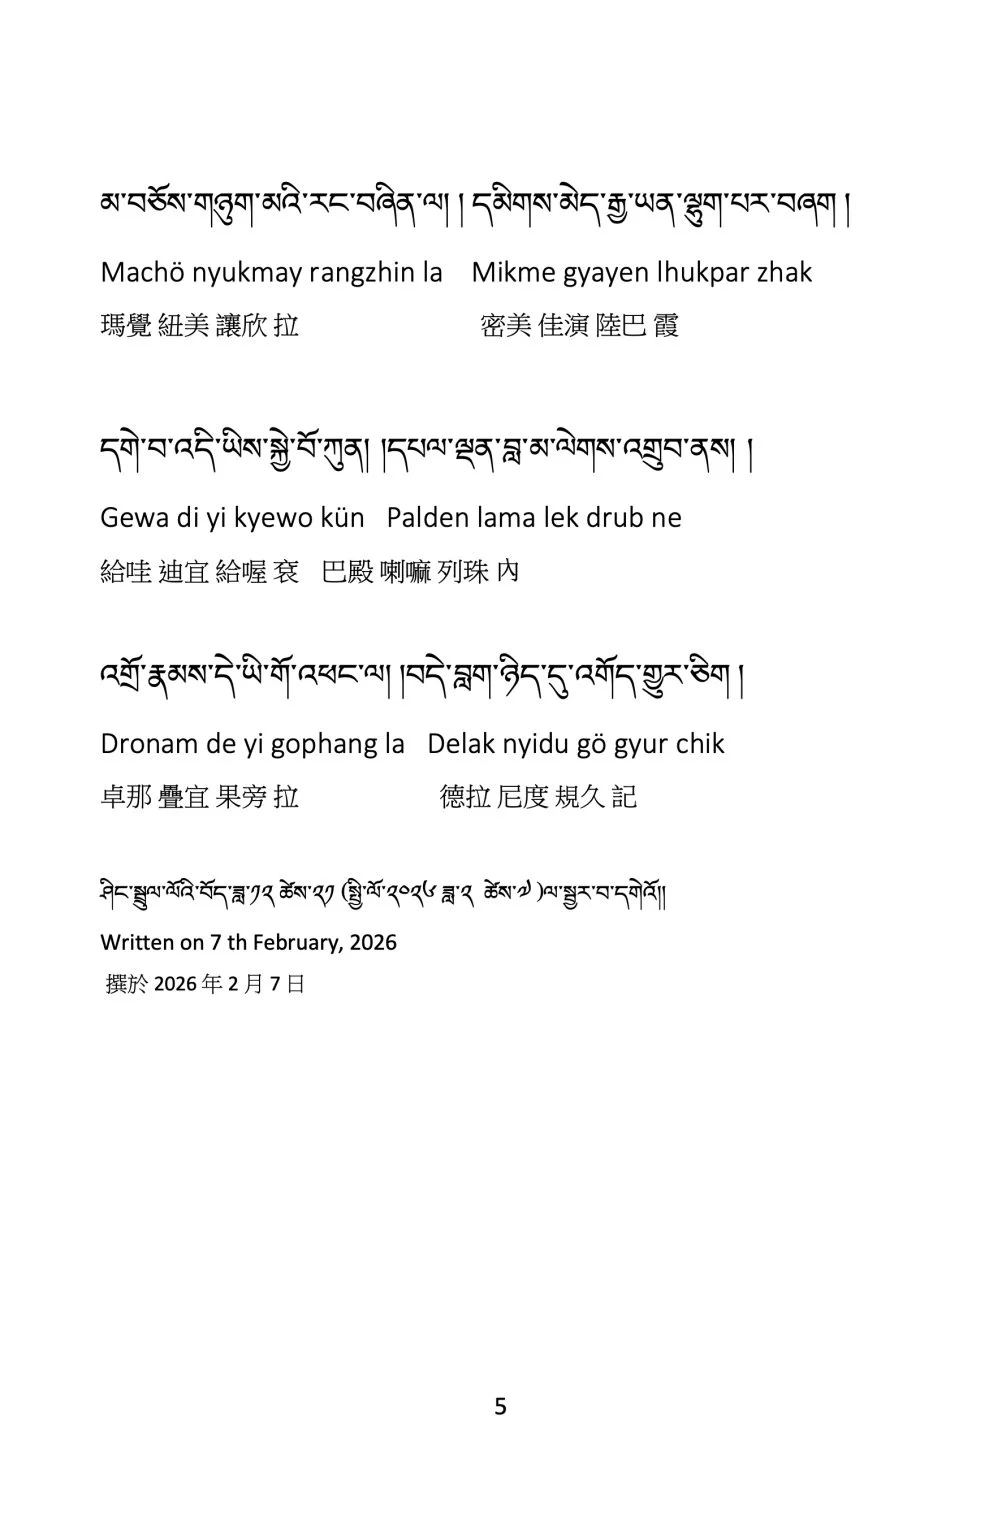 མ་བཅོས་གཉུག་མའི་རང་བཞིན་ལ། ། དམིགས་མེད་རྒྱ་ཡན་ལྷུག་པར་བཞག །
Machö nyukmay rangzhin la Mikme gyayen lhukpar zhak
瑪覺 紐美 讓欣 拉 密美 佳演 陸巴 霞
དགེ་བ་འདི་ཡིས་སྐྱེ་བོ་ཀུན། །དཔལ་ལྡན་བླ་མ་ལེགས་འགྲུབ་ནས། །
Gewa di yi kyewo kün Palden lama lek drub ne
給哇 迪宜 給喔 袞 巴殿 喇嘛 列珠 內
འགྲོ་རྣམས་དེ་ཡི་གོ་འཕང་ལ། །བདེ་བླག་ཉིད་དུ་འགོད་གྱུར་ཅིག །
Dronam de yi gophang la Delak nyidu gö gyur chik
卓那 疊宜 果旁 拉 德拉 尼度 規久 記
ཤིང་སྦྲུལ་ལོའི་བོད་ཟླ་༡༢ ཚེས་༢༡ (སྤྱི་ལོ་༢༠༢༦ ཟླ་༢ ཚེས་༧ )ལ་སྦྱར་བ་དགེའོ།།
Written on 7 th February, 2026
撰於 2026 年 2 月 7 日
5